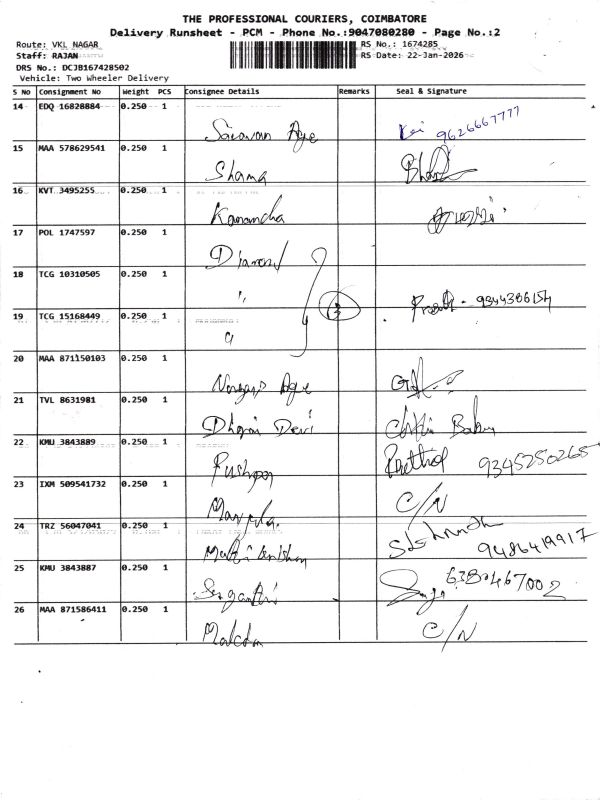 THE PROFESSIONAL COURIERS, COIMBATORE
Delivery Runsheet - PCM - Phone No.:9047080280 - Page No.:2
Route: VKL NAGAR
RS No.: 1674285
Staff: RAJAN
RS Date: 22-Jan-2026
DRS No.: DCJB167428502
Vehicle: Two Wheeler Delivery
S No Consignment No Weight PCS Consignee Details Remarks Seal & Signature
14 EDQ 16828884 0.250 1
9626667777
15 MAA 578629541 0.250 1
Shama
16 KVT 3495255 0.250 1
17 POL 1747597 0.250 1
Diamond
18 TCG 10310505 0.250 1
"
3
19 TCG 15168449 0.250 1
"
20 MAA 871150103 0.250 1
21 TVL 8631981 0.250 1
Devi Chitti Babu
22 KMU 3843889 0.250 1
9345250265
23 IXM 509541732 0.250 1
C/N
24 TRZ 56047041 0.250 1
9486419917
25 KMU 3843887 0.250 1
26 MAA 871586411 0.250 1
C/N